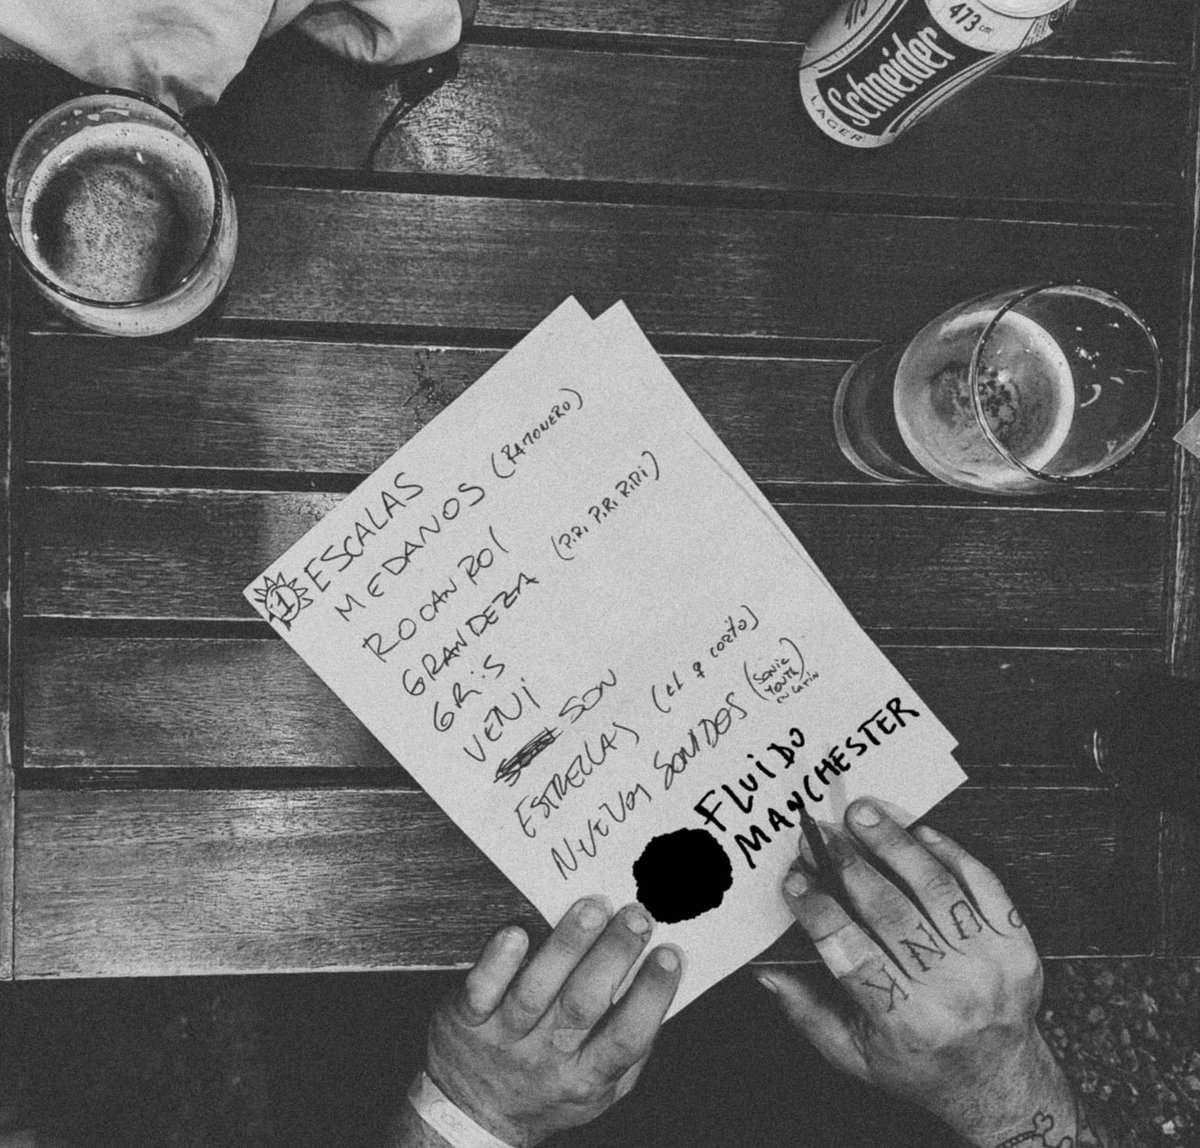 473 cm³
Schneider
LAGER
1 ESCALAS
MEDANOS (RAMONERO)
ROCANROL
GRANDEZA (PiRi PiRi RiRi)
GRiS
VENi
SON
ESTRELLAS (EL + CORTO)
NUEVOS SONiDOS (SONiC
YOUTH
EN LATiN)
FLUiDO
MANCHESTER
KNU